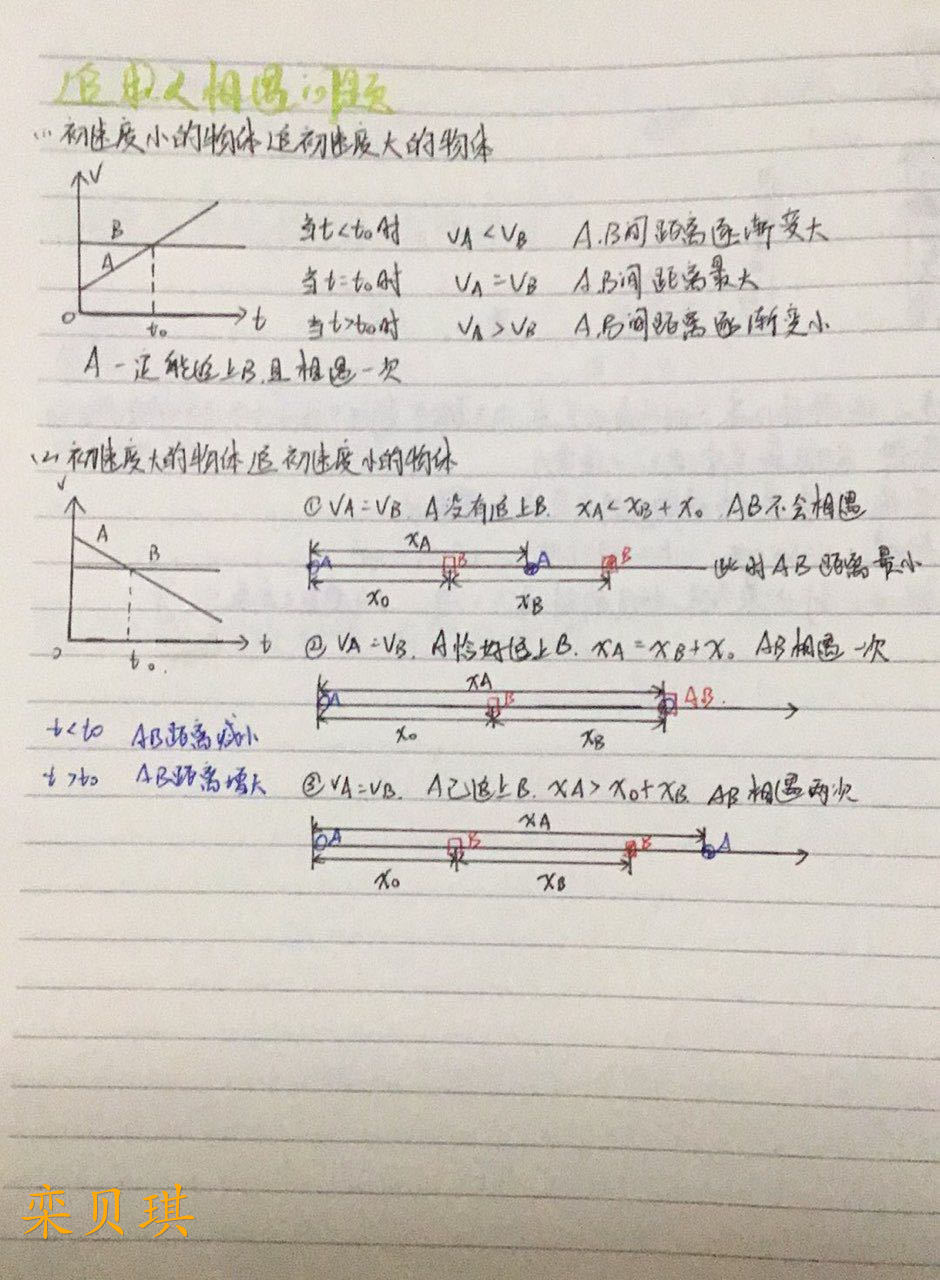 追及相遇问题
(1) 初速度小的物体追初速度大的物体
V
B
A
O t₀ t
当t<t₀时 VA<VB A.B间距离逐渐变大
当t=t₀时 VA=VB A.B间距离最大
当t>t₀时 VA>VB A.B间距离逐渐变小
A一定能追上B,且相遇一次
(2) 初速度大的物体追初速度小的物体
V
A
B
O t₀ t
① VA=VB. A没有追上B. xA<xB+x₀ AB不会相遇
xA
A B A B 此时AB距离最小
x₀ xB
② VA=VB. A恰好追上B. xA=xB+x₀ AB相遇一次
xA
A B AB.
x₀ xB
t<t₀ AB距离减小
t>t₀ AB距离增大
③ VA=VB. A已追上B. xA>x₀+xB. AB相遇两次
xA
A B B A
x₀ xB
栾贝琪